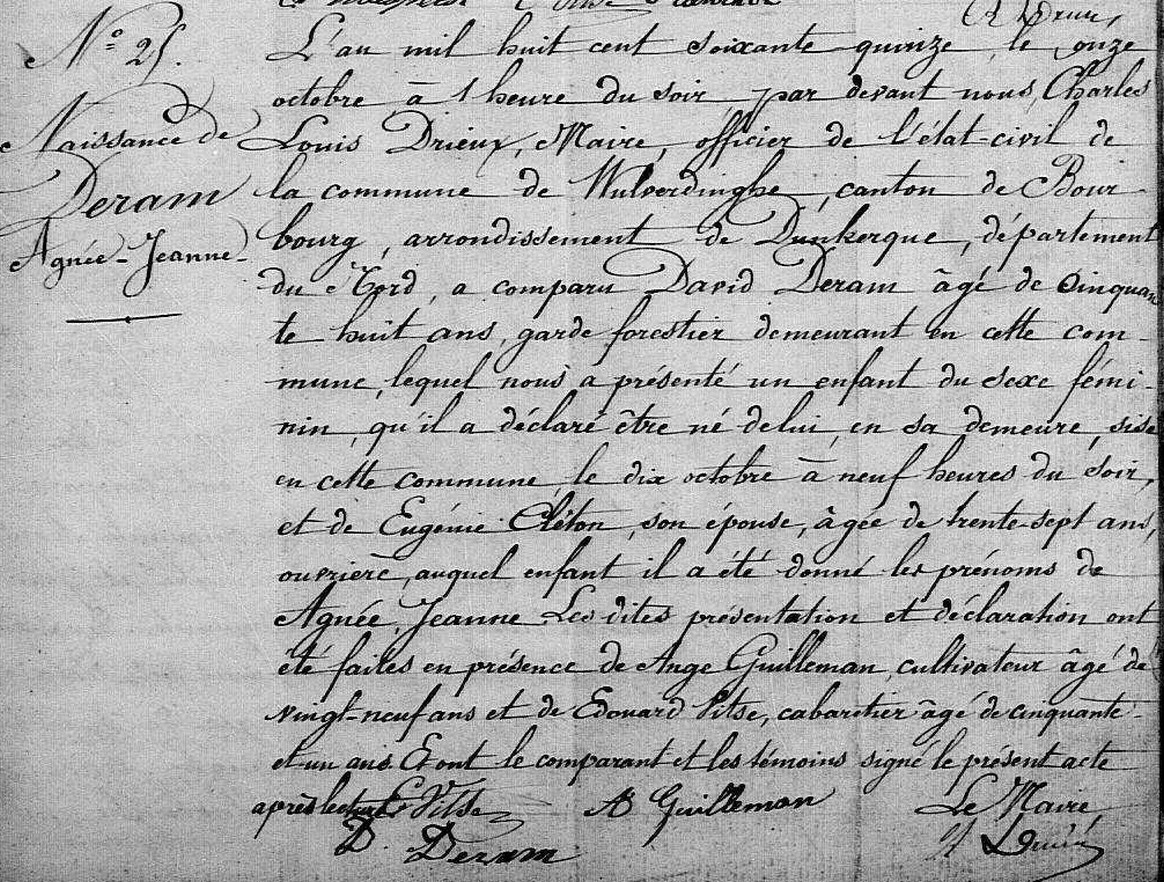 L'an mil huit cent soixante quinze le onze
octobre à 1 heure du soir par devant nous, Charles
Louis Drieux, Maire, officier de l'état-civil de
la commune de Wulverdinghe, canton de Bour
bourg, arrondissement de Dunkerque, département
du Nord, a comparu David Deram âgé de cinquan
te huit ans, garde forestier demeurant en cette com-
mune, lequel nous a présenté un enfant du sexe fémi-
nin, qu'il a déclaré être né de lui, en sa demeure, sise
en cette commune, le dix octobre à neuf heures du soir,
et de Eugénie Cléton, son épouse, âgée de trente-sept ans,
ouvrière, auquel enfant il a été donné les prénoms de
Agnée, Jeanne Les dites présentation et déclaration ont
été faites en présence de Ange Guilleman, cultivateur âgé de
vingt-neuf ans et de Edouard Vitse, cabaretier âgé de cinquante-
et un ans. Et ont le comparant et les témoins signé le présent acte
après lecture E Vitse A Guilleman Le Maire,
D. Deram
N° 25.
Naissance de
Deram
Agnée-Jeanne-